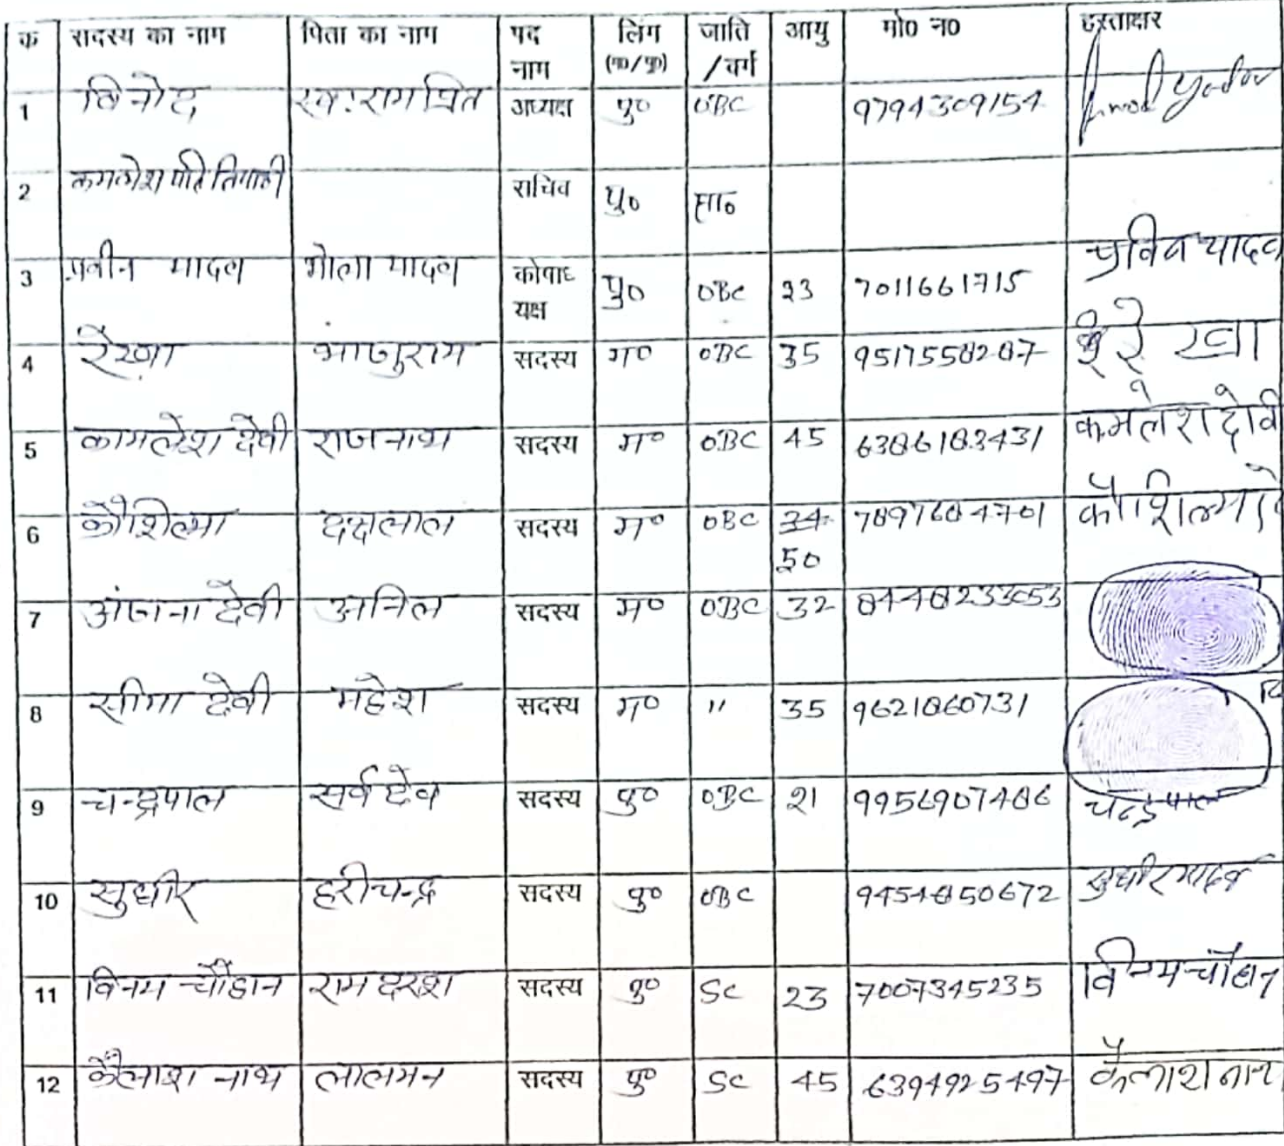 क सदस्य का नाम पिता का नाम पद नाम लिंग (म०/पु०) जाति /वर्ग आयु मो० न० हस्ताक्षर
1 विनोद स्व: राम प्रित अध्यक्ष पु० OBC 9794309154 Yadav
2 कमलेश पति तिपाठी सचिव पु० सा०
3 प्रवीन यादव भोला यादव कोषाध यक्ष पु० OBC 23 7011661715 प्रविन यादव
4 रेखा सदस्य म० OBC 35 9517558287 रेखा
5 कामलेश देवी राजनाथ सदस्य म० OBC 45 6386183431 कमलेश देवी
6 कौशिल्या दद्दलाल सदस्य म० OBC 34 50 7897684701 कौशिल्या
7 अंजना देवी अनिल सदस्य म० OBC 32 8448233053
8 सीमा देवी महेश सदस्य म० " 35 9621860731
9 चन्द्रपाल सर्व देव सदस्य पु० OBC 21 9956907486 चन्द्रपाल
10 सुधीर हरीचन्द्र सदस्य पु० OBC 9454850672 सुधीर यादव
11 विनय चौहान राम दरश सदस्य पु० SC 23 7007345235 विनय चौहान
12 कैलाश नाथ लालमन सदस्य पु० SC 45 6394925497 कैलाश नाथ